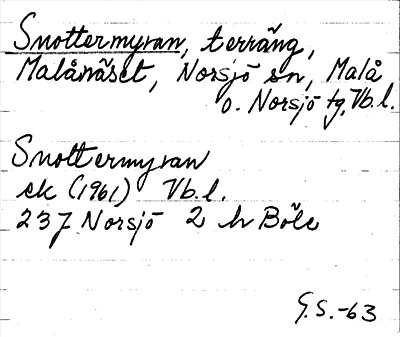 Snottermyran, terräng,
Malånäset, Norsjö sn, Malå
o. Norsjö tg, Vb.l.
Snottermyran
ek (1961) Vb.l.
237 Norsjö 2 h Böle
G.S.-63